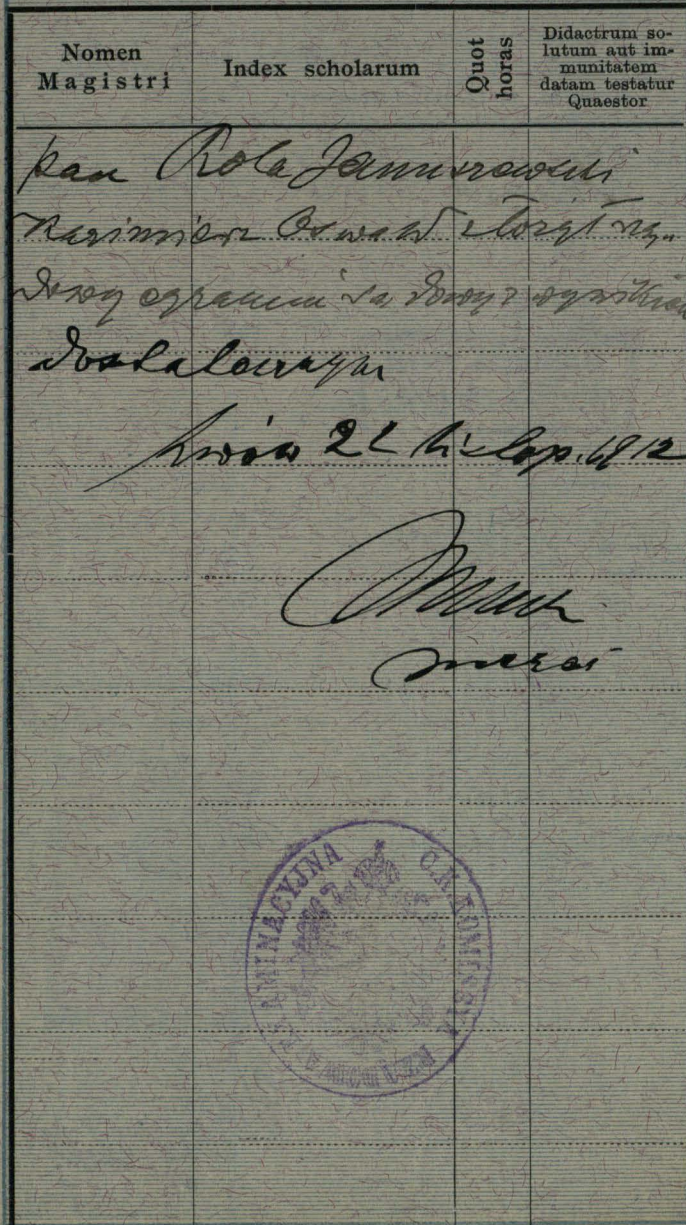 Nomen
Magistri
Index scholarum
Quot
horas
Didactrum so-
lutum aut im-
munitatem
datam testatur
Quaestor
Pan Rola Januszewski
Kazimierz Oswald złożył rzą-
dowy egzamin sądowy z wynikiem
dostatecznym
Lwów 22 listop. 1912
C.K. KOMISYA RZĄDOWA EGZAMINACYJNA